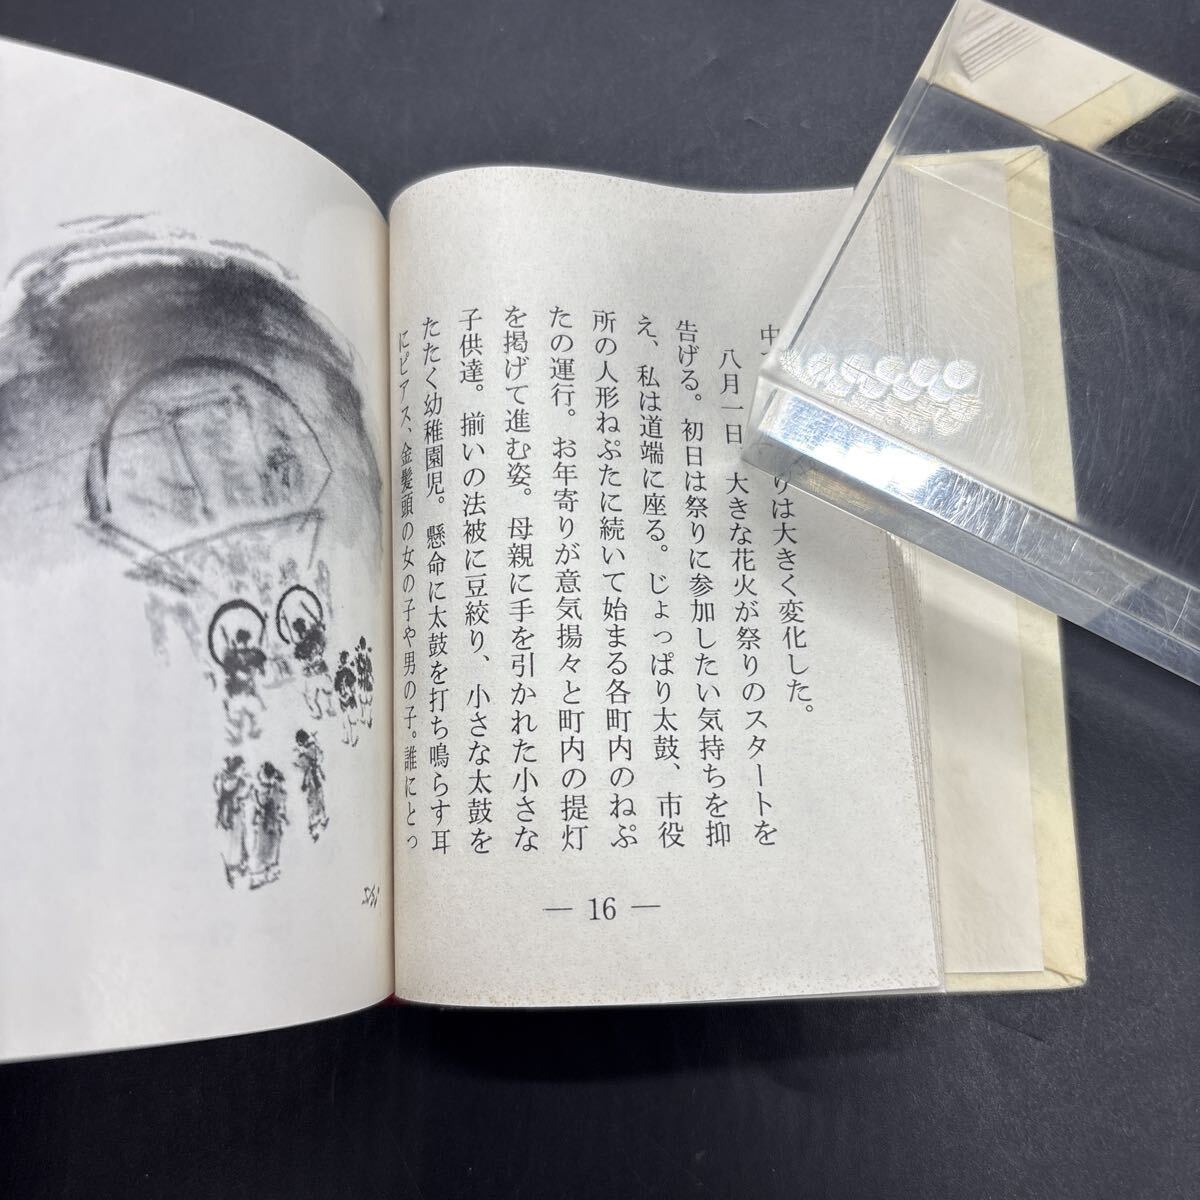 中
りは大きく変化した。
八月一日 大きな花火が祭りのスタートを
告げる。初日は祭りに参加したい気持ちを抑
え、私は道端に座る。じょっぱり太鼓、市役
所の人形ねぷたに続いて始まる各町内のねぷ
たの運行。お年寄りが意気揚々と町内の提灯
を掲げて進む姿。母親に手を引かれた小さな
子供達。揃いの法被に豆絞り、小さな太鼓を
たたく幼稚園児。懸命に太鼓を打ち鳴らす耳
にピアス、金髪頭の女の子や男の子。誰にとっ
— 16 —